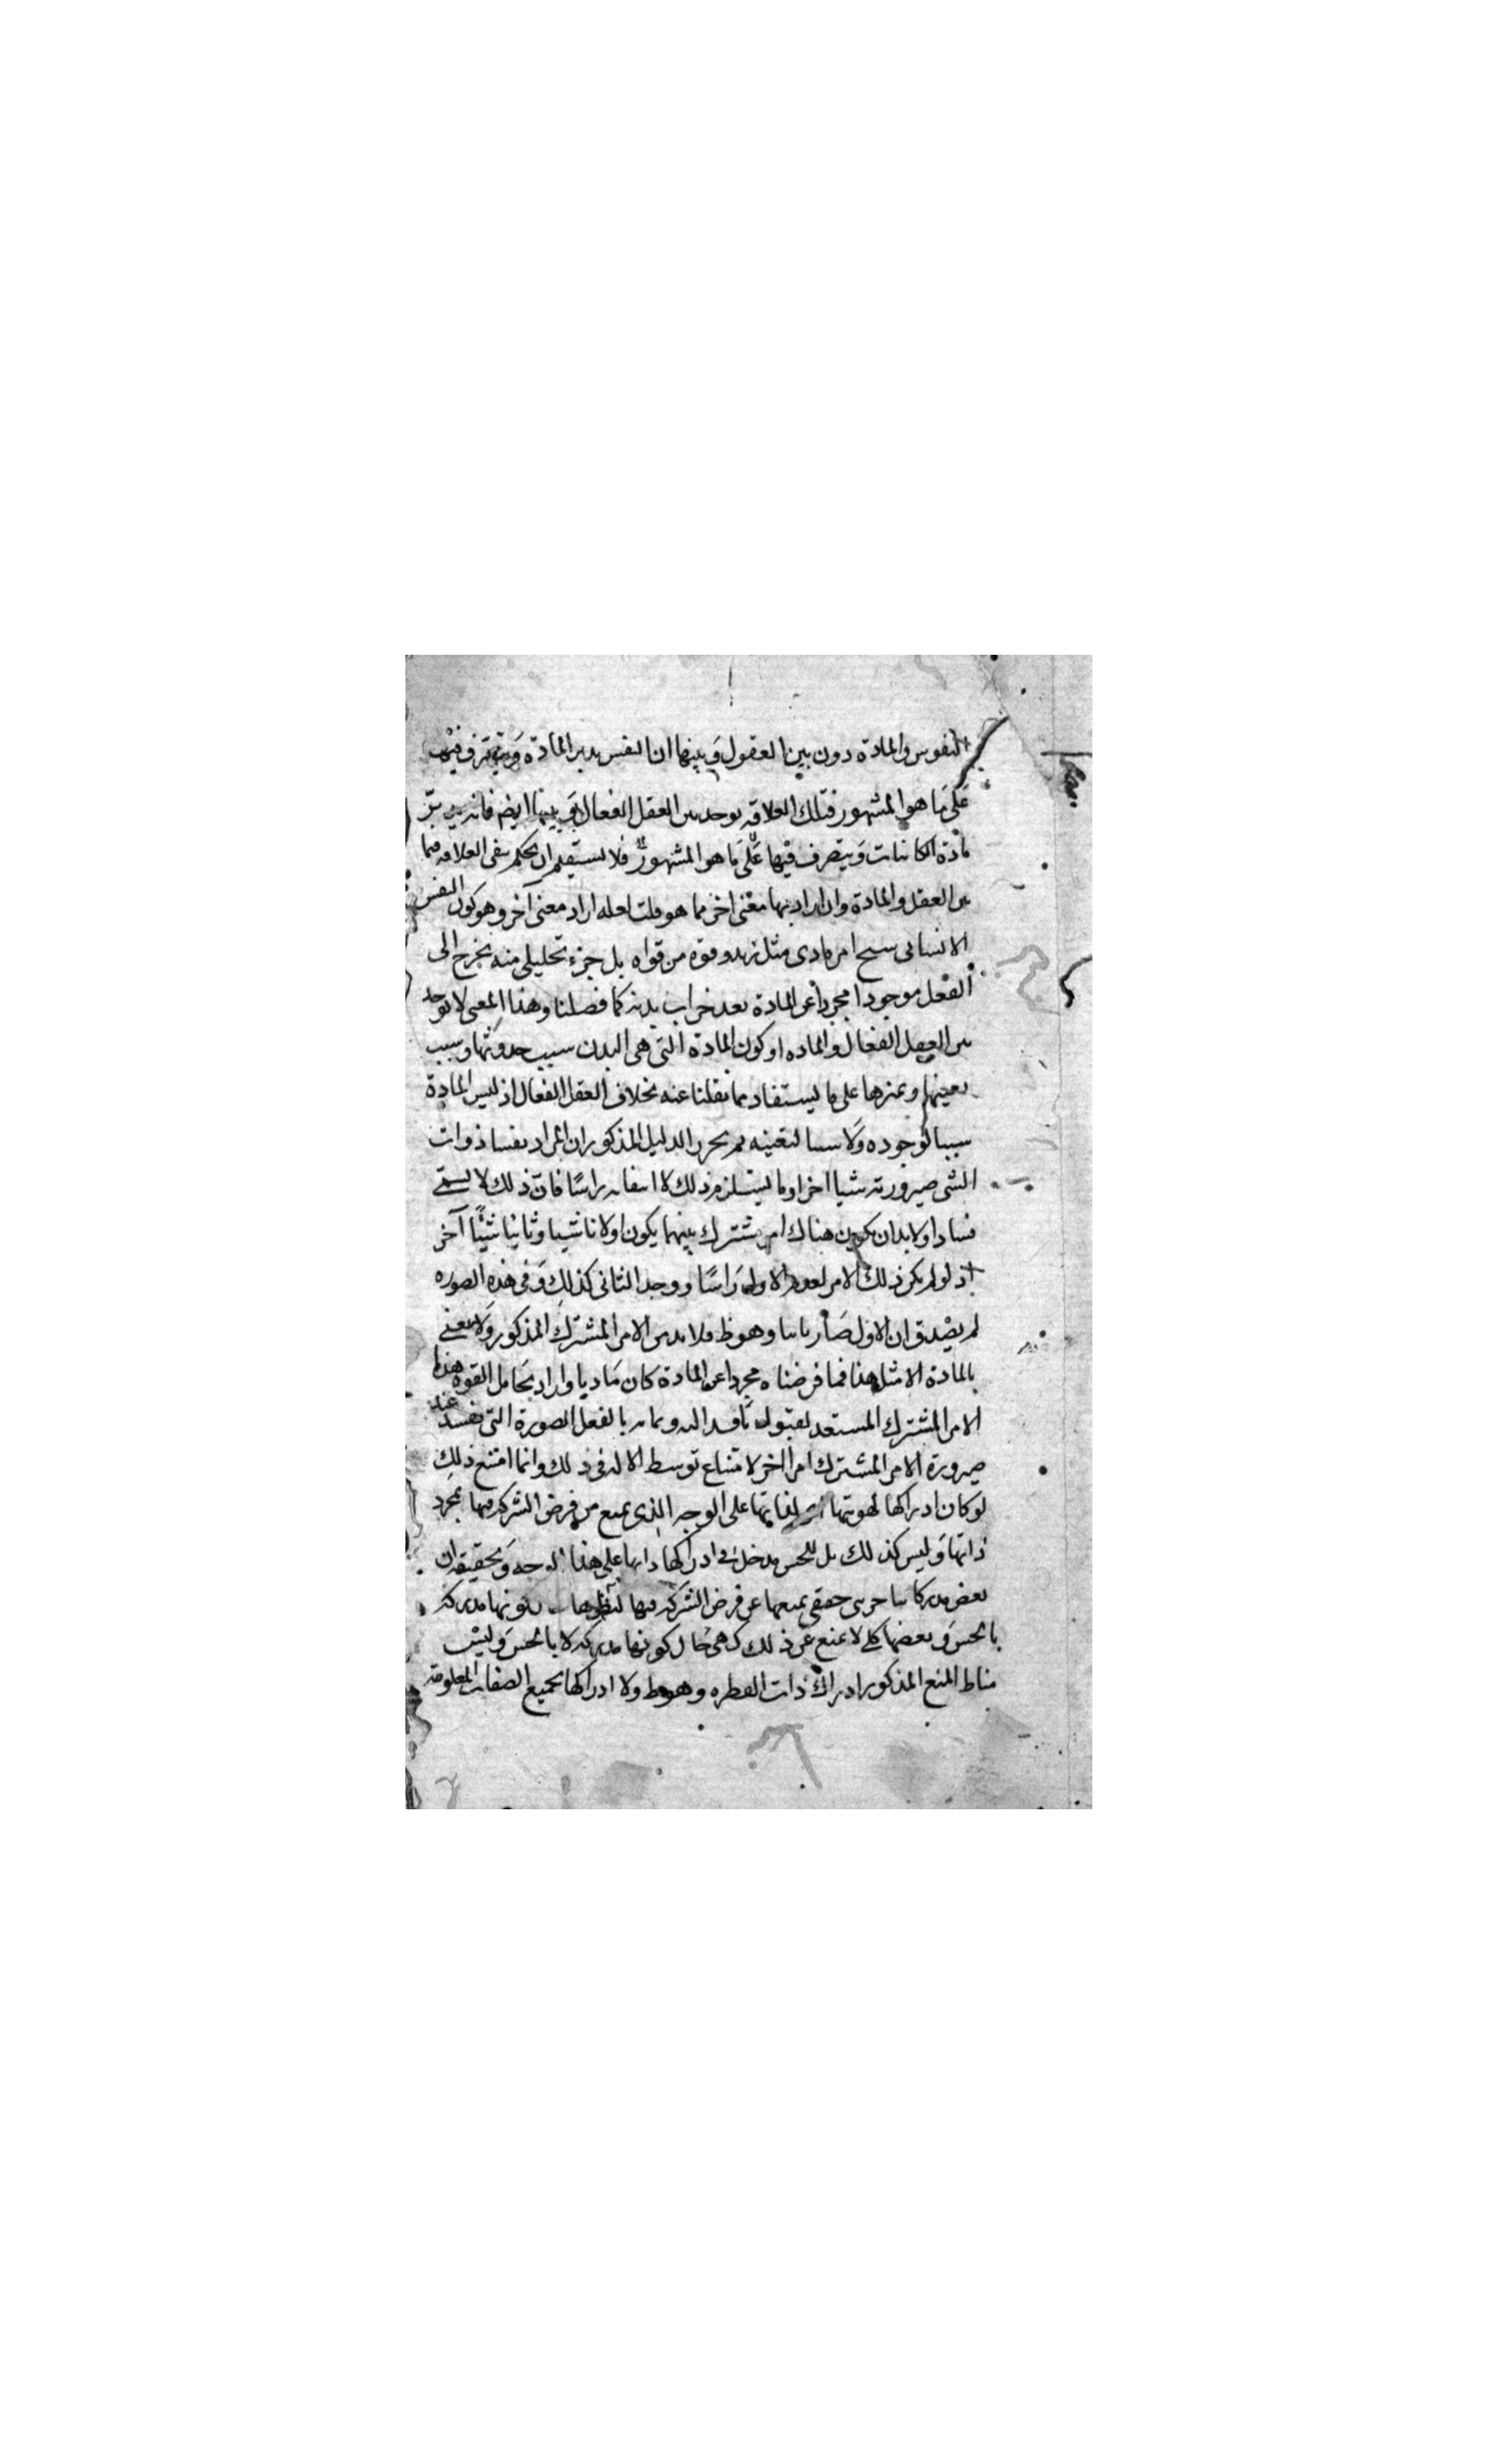 النفوس والمادة دون بين العقول وبينها ان النفس يدبر المادة ويتصرف فيها
على ما هو المشهور فتلك العلاقه يوجد بين العقل الفعال وبينها ايضا فانه يدبر
مادة الكائنات ويتصرف فيها على ما هو المشهور فلا يستقيم ان يحكم بنفى العلاقه فيما
بين العقل والمادة وان اراد بها معنى اخر فما هو قلت لعله اراد معنى آخر وهو كون النفس
الانسانى امر مادى مثل زيد وقوة من قواه بل جزء تحليلى منه يخرج الى
الفعل موجودا مجردا عن المادة بعد خراب بدنه كما فصلنا وهذا المعنى لا يوجد
بين العقل الفعال والماده او كون المادة التى هى البدن سبب حدوثها وسبب
تعينها وتميزها على ما يستفاد مما نقلنا عنه بخلاف العقل الفعال اذ ليس المادة
سببا لوجوده ولا سببا لتعينه ثم تحرير الدليل المذكور ان المراد بفساد ذات
الشى صيرورته شيا اخر او ما يستلزم ذلك لا انتفائه راسًا فان ذلك لا يسمى
فسادا ولا بد ان يكون هناك امر مشترك بينهما يكون اولا شيا وثانيا شيئًا آخر
اذ لو لم يكن ذلك الامر لعدم الاول راسًا ووجد الثانى كذلك وفى هذه الصوره
لم يصدق ان الاول صار ثانيا وهو ظ فلا بد من الامر المشترك المذكور ولا نعنى
بالمادة الا مثل هذا فما فرضناه مجردا عن المادة كان ماديا واراد بحامل القوة هذا
الامر المشترك المستعد لقبول وبما بالفعل الصورة التى تفسد عند
صيرورة الامر المشترك امرا اخر لامتناع توسط الاله فى ذلك وانما امتنع ذلك
لو كان ادراكها لهويتها على الوجه الذى يمنع من فرض الشركه فيها بمجرد
ذاتها وليس كذلك بل للحس مدخل فى ادراكها ذاتها على هذا الوجه وتحقيقه ان
بعض مدركاتنا جزئى حقيقى يمنعها عن فرض الشركه فيها لكونها مدركه
بالحس وبعضها كلى لا يمنع عن ذلك كهى حال كونها مدركه لا بالحس وليس
مناط المنع المذكور ادراك ذات القطره وهو ظ ولا ادراكها بجميع الصفات المعلومه